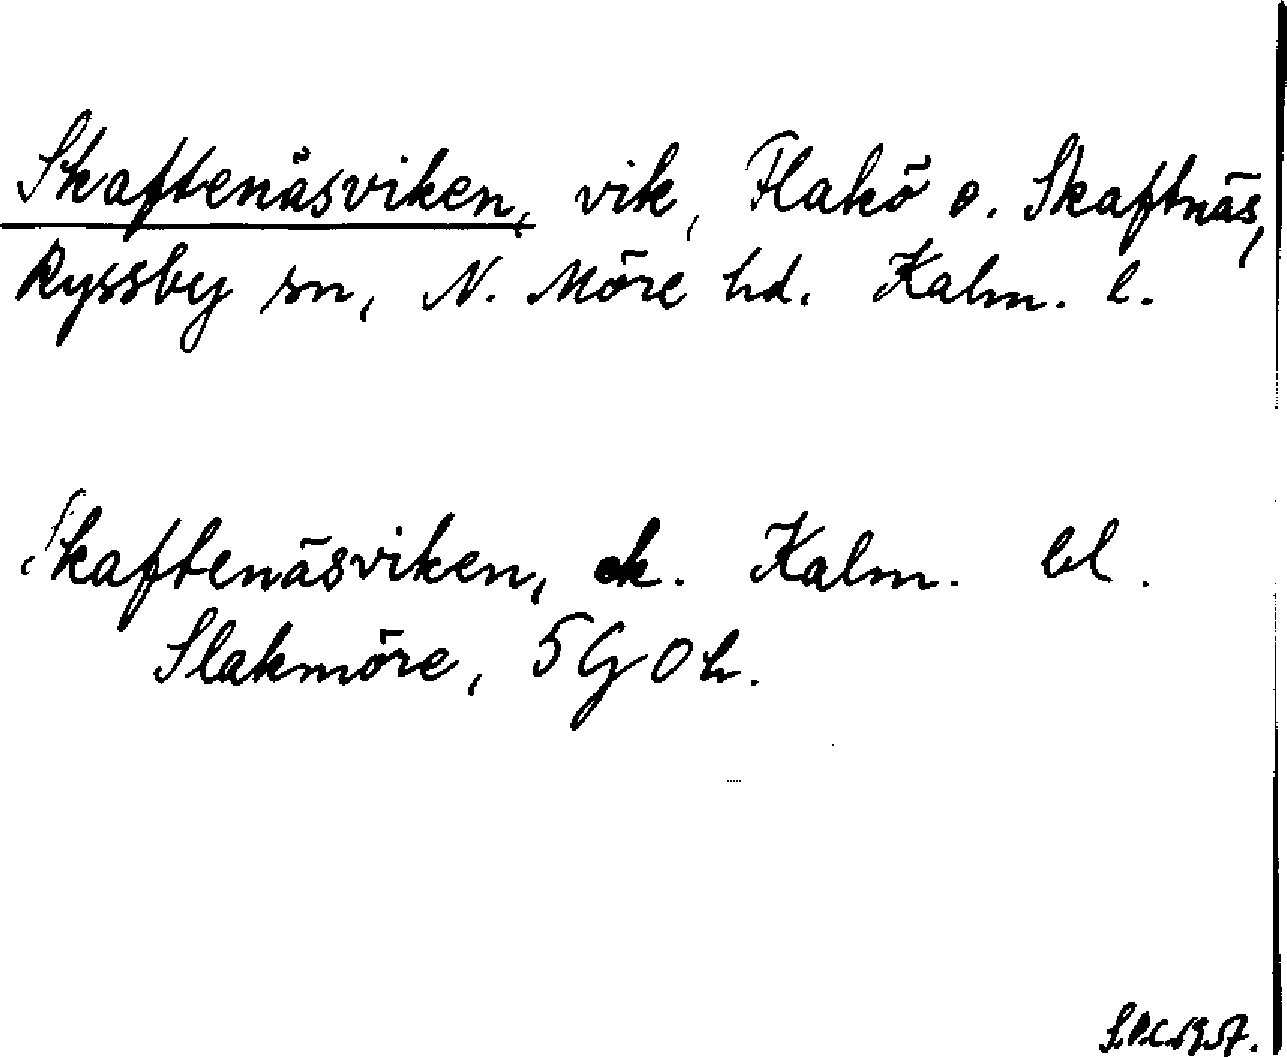 Skaftenäsviken, vik, Flakö o. Skaftnäs,
Ryssby sn, N. Möre hd. Kalm. l.
Skaftenäsviken, ek. Kalm. bl.
Slakmöre, 5G0h.
1957.